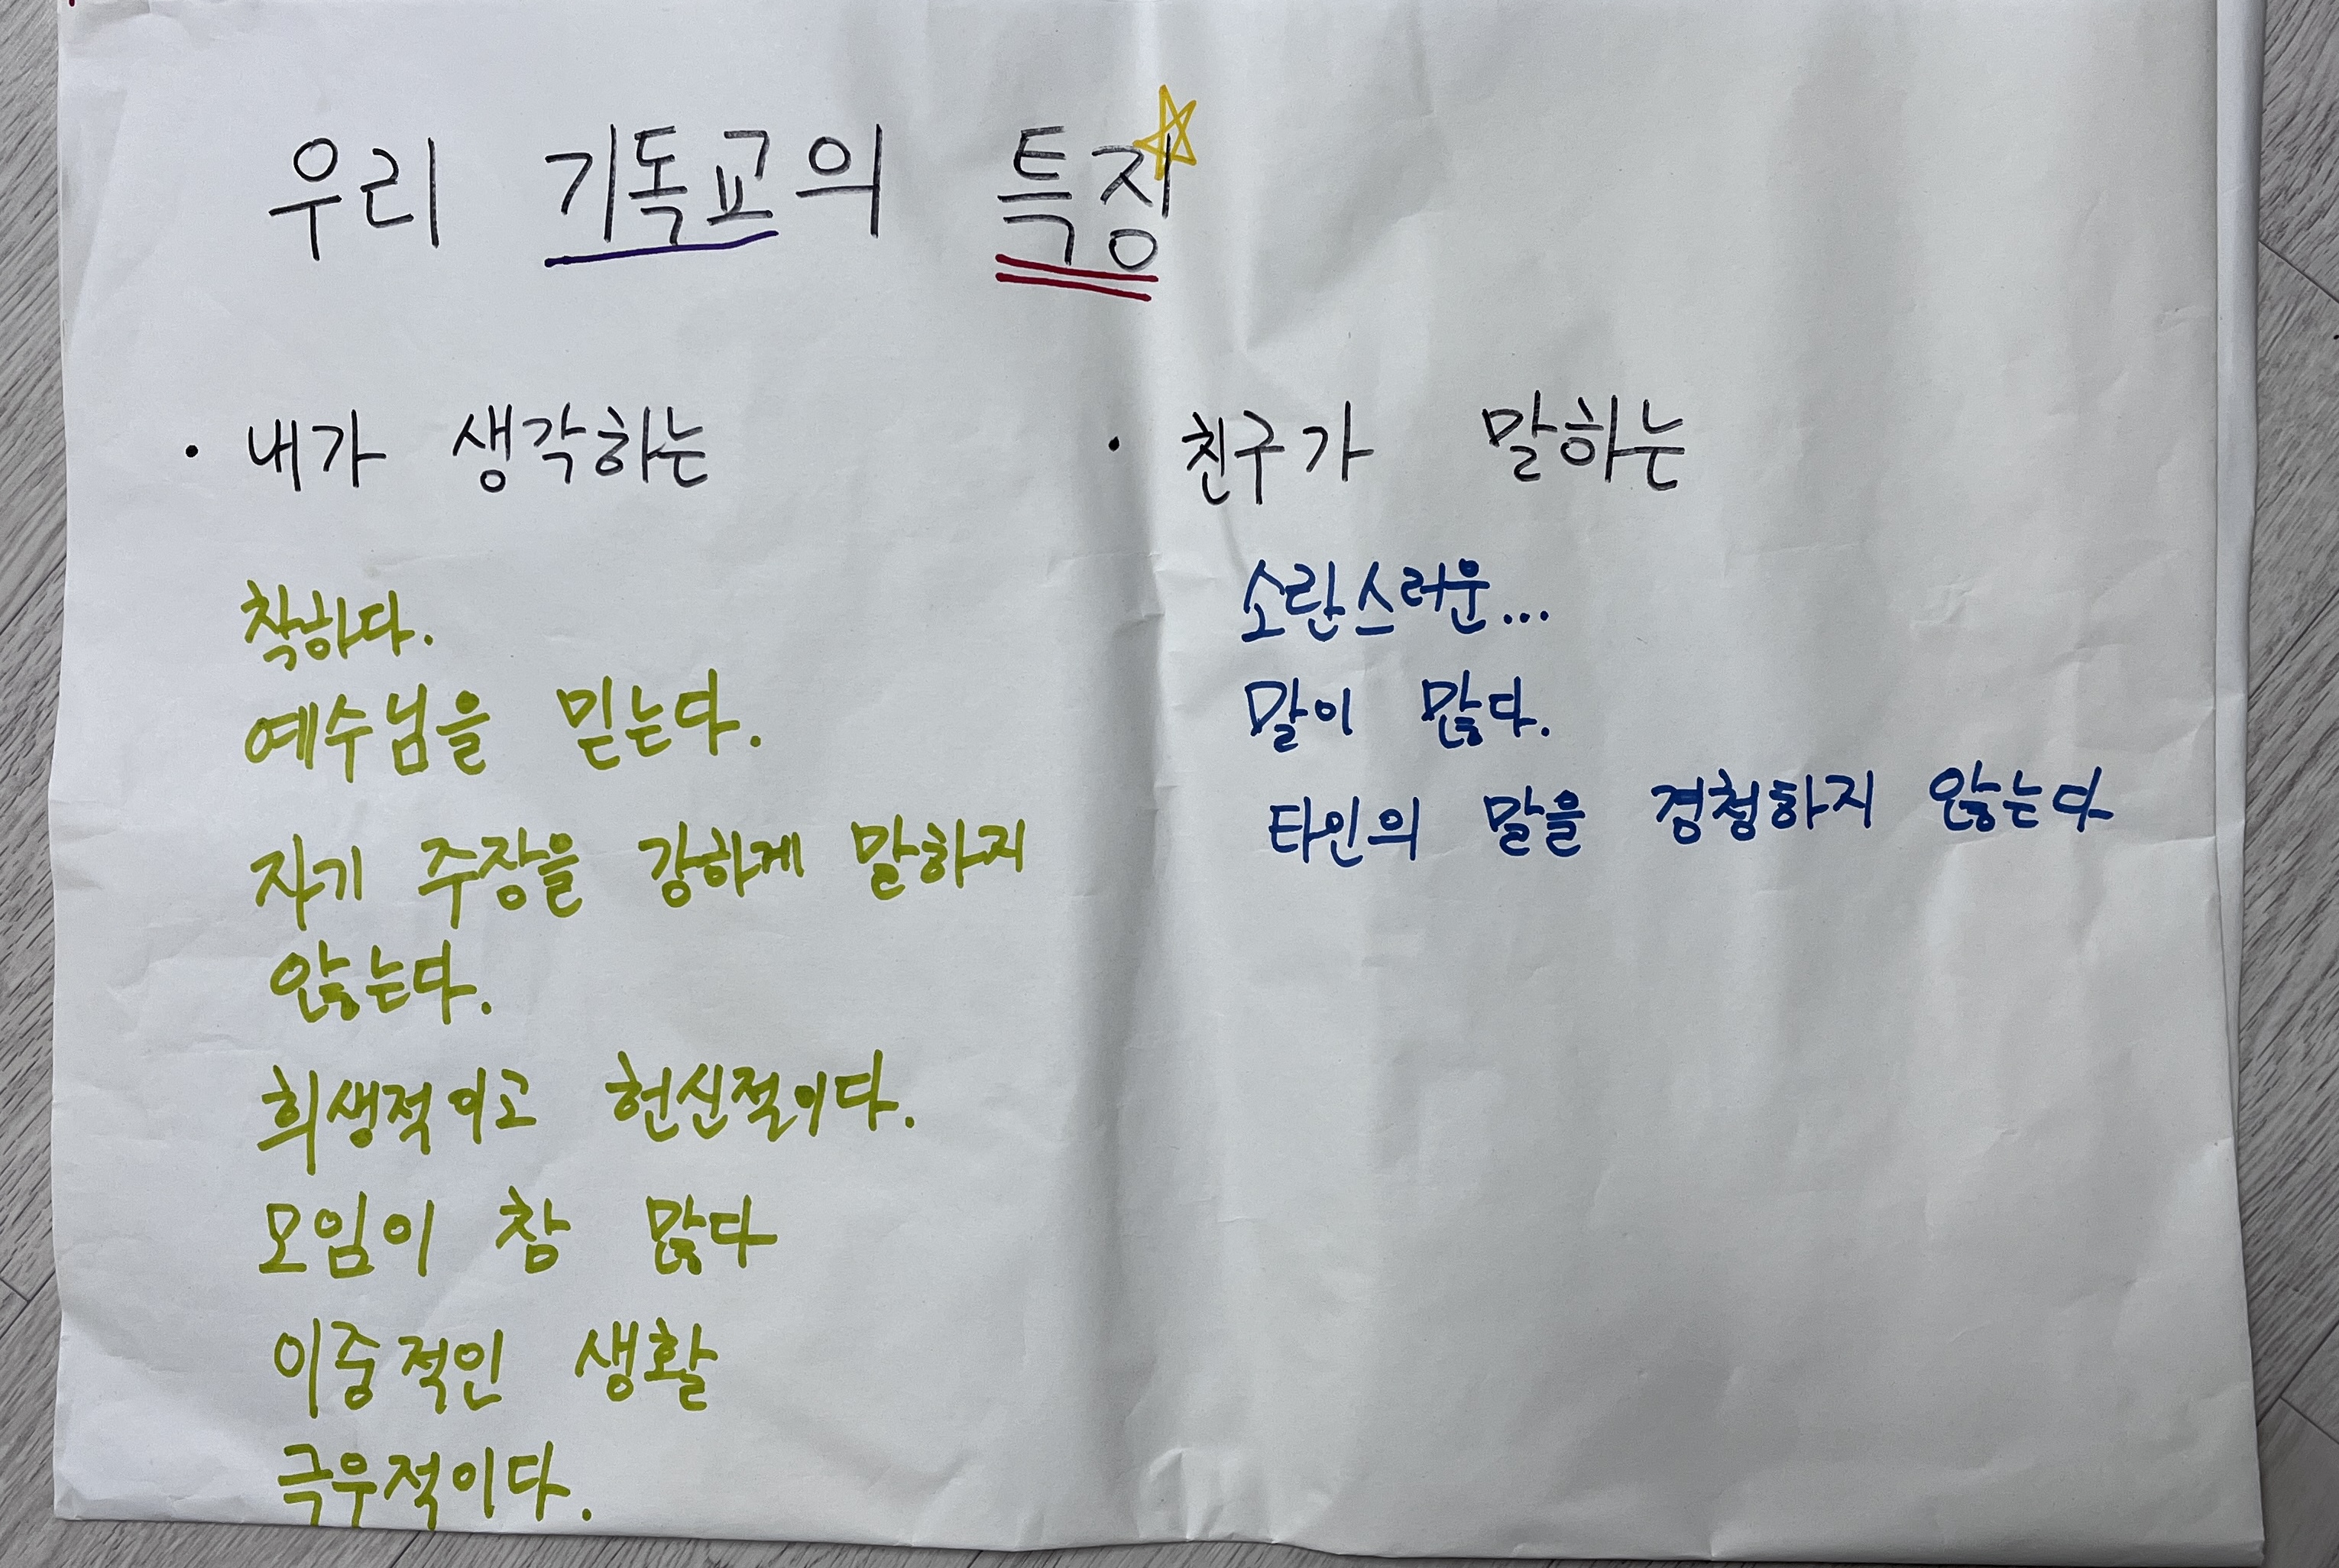 우리 기독교의 특징
· 내가 생각하는
착하다.
예수님을 믿는다.
자기 주장을 강하게 말하지
않는다.
희생적이고 헌신적이다.
모임이 참 많다
이중적인 생활
극우적이다.
· 친구가 말하는
소란스러운...
말이 많다.
타인의 말을 경청하지 않는다